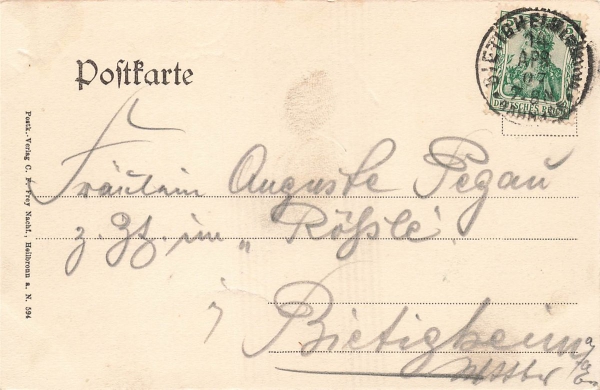 Postkarte
BIETIGHEIM
APR
07
DEUTSCHES REICH
Fräulein Auguste Pegau
z. Zt. im „Rößle"
Bietigheim
Postk.-Verlag C. F. Frey Nachf., Heilbronn a. N. 594